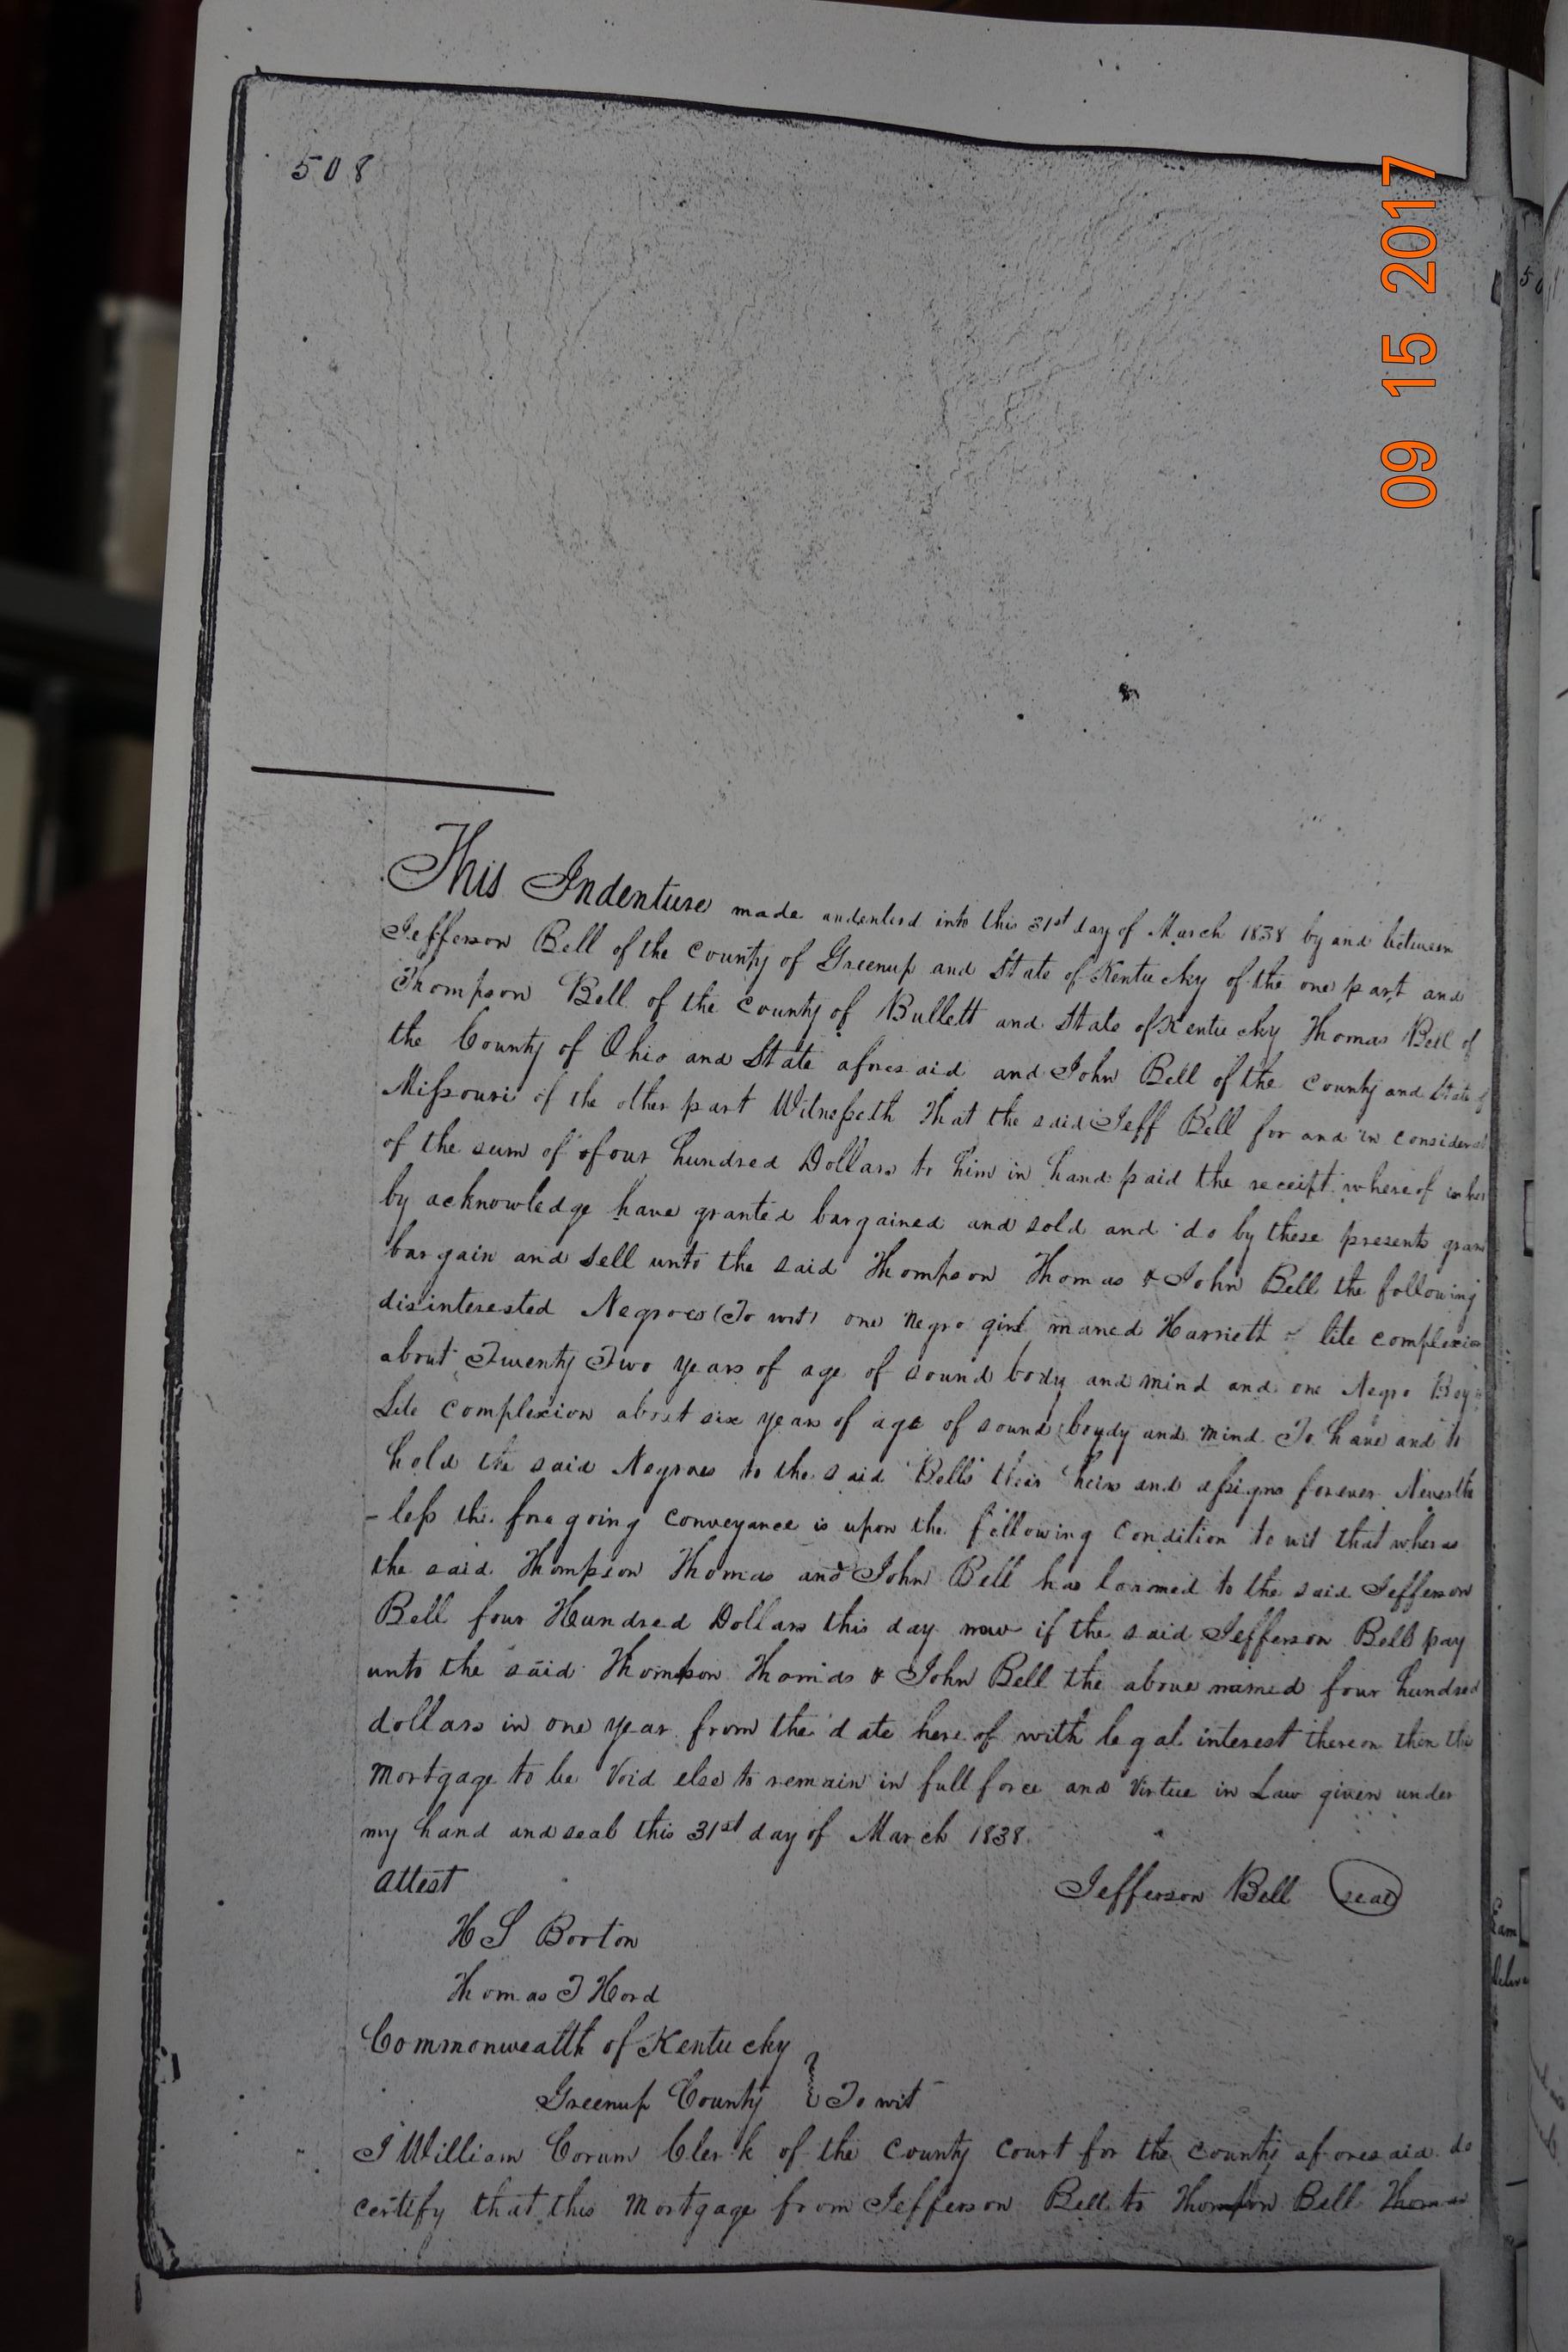 508
09 15 2017
This Indenture made andenterd into this 31st day of March 1838 by and between
Jefferson Bell of the county of Greenup and State of Kentucky of the one part and
Thompson Bell of the county of Bullett and State of Kentucky Thomas Bell of
the County of Ohio and State aforesaid and John Bell of the county and State of
Missouri of the other part Witnesseth that the said Jeff Bell for and in considerat
of the sum of of four hundred Dollars to him in hand paid the receipt whereof is her
by acknowledge have granted bargained and sold and do by these presents gran
bargain and sell unto the said Thompson Thomas & John Bell the following
disinterested Negroes (To wit) one negro girl maned Harriett of lite complexion
about Twenty Two years of age of sound body and mind and one Negro Boy
Lite complexion about six years of age of sound boydy and mind To have and to
hold the said Negroes to the said Bells their heirs and assigns forever Neverthe
- less the foregoing conveyance is upon the following condition to wit that whereas
the said Thompson Thomas and John Bell has loarned to the said Jefferson
Bell four Hundred Dollars this day now if the said Jefferson Bell pay
unto the said Thompson Thomas & John Bell the above named four hundred
dollars in one year from the date hereof with legal interest thereon then this
mortgage to be void else to remain in full force and virtue in Law given under
my hand and seal this 31st day of March 1838.
Attest
Jefferson Bell seal
H S Borton
Thomas T Hord
Commonwealth of Kentucky
Greenup County } To wit
I William Corum Clerk of the county court for the county aforesaid do
certify that this mortgage from Jefferson Bell to Thompson Bell Thomas